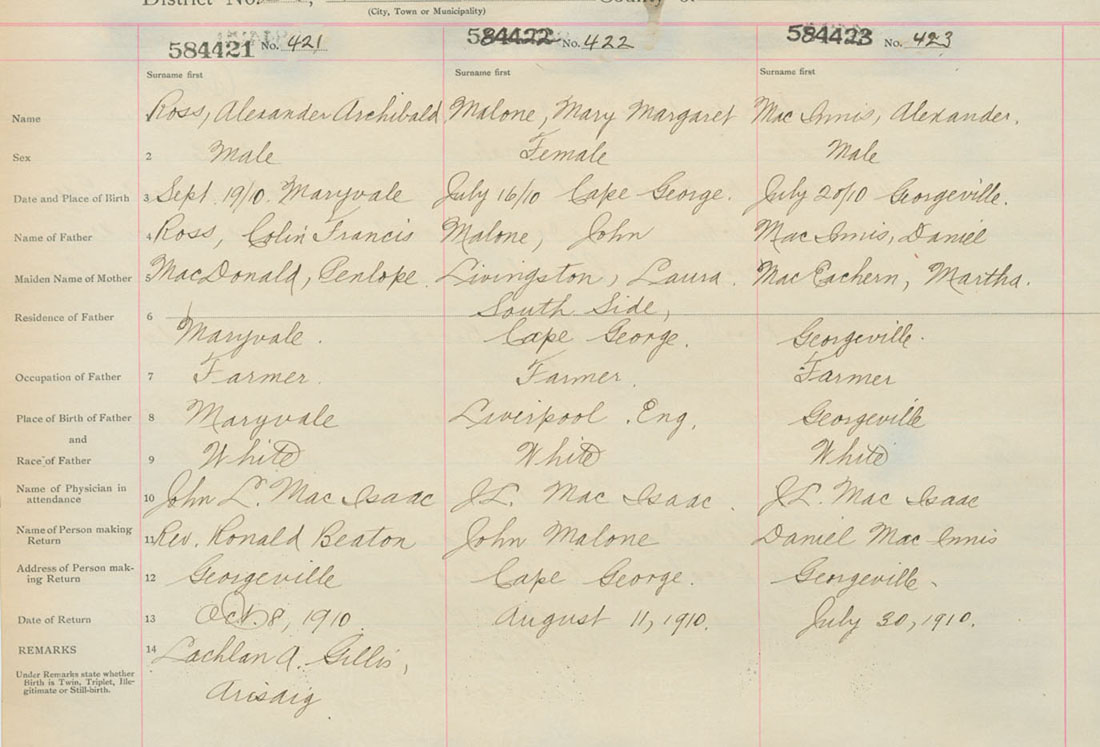 District No.
(City, Town or Municipality)
584421 No. 421 584422 No. 422 584423 No. 423
Surname first Surname first Surname first
Name Ross, Alexander Archibald Malone, Mary Margaret Mac Innis, Alexander.
Sex 2 Male Female Male
Date and Place of Birth 3 Sept. 19/10. Maryvale July 16/10 Cape George. July 20/10 Georgeville.
Name of Father 4 Ross, Colin Francis Malone, John Mac Innis, Daniel
Maiden Name of Mother 5 MacDonald, Penlope. Livingston, Laura. Mac Eachern, Martha.
South Side,
Residence of Father 6 Maryvale. Cape George. Georgeville.
Occupation of Father 7 Farmer. Farmer. Farmer
Place of Birth of Father 8 Maryvale Liverpool. Eng. Georgeville
and
Race of Father 9 White White White
Name of Physician in
attendance 10 John L. Mac Isaac J.L. Mac Isaac. J.L. Mac Isaac
Name of Person making
Return 11 Rev. Ronald Beaton John Malone Daniel Mac Innis
Address of Person mak-
ing Return 12 Georgeville Cape George. Georgeville.
Date of Return 13 Oct. 8, 1910 August 11, 1910. July 30, 1910.
REMARKS 14 Lachlan A. Gillis,
Under Remarks state whether
Birth is Twin, Triplet, Ille-
gitimate or Still-birth.
Arisaig